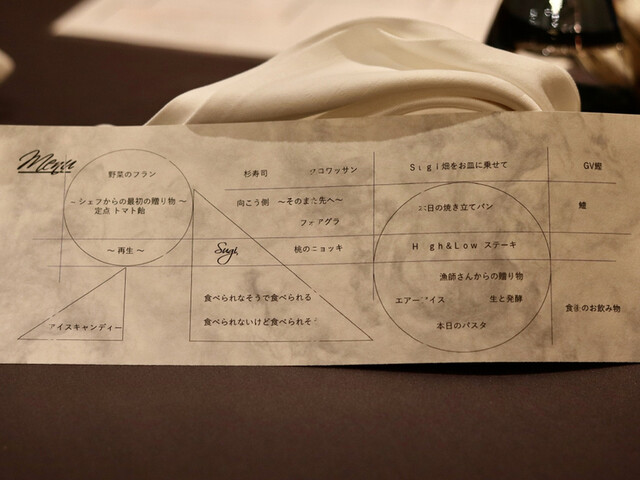 Menu
野菜のフラン
～シェフからの最初の贈り物～
定点 トマト飴
～ 再生 ～
アイスキャンディー
杉寿司
クロワッサン
向こう側 ～そのまた先へ～
フォアグラ
Sugi
桃のニョッキ
食べられなそうで食べられる
食べられないけど食べられそう
Sugi畑をお皿に乗せて
本日の焼き立てパン
High&Low ステーキ
漁師さんからの贈り物
エアーアイス
生と発酵
本日のパスタ
GV鰹
鰻
食後のお飲み物